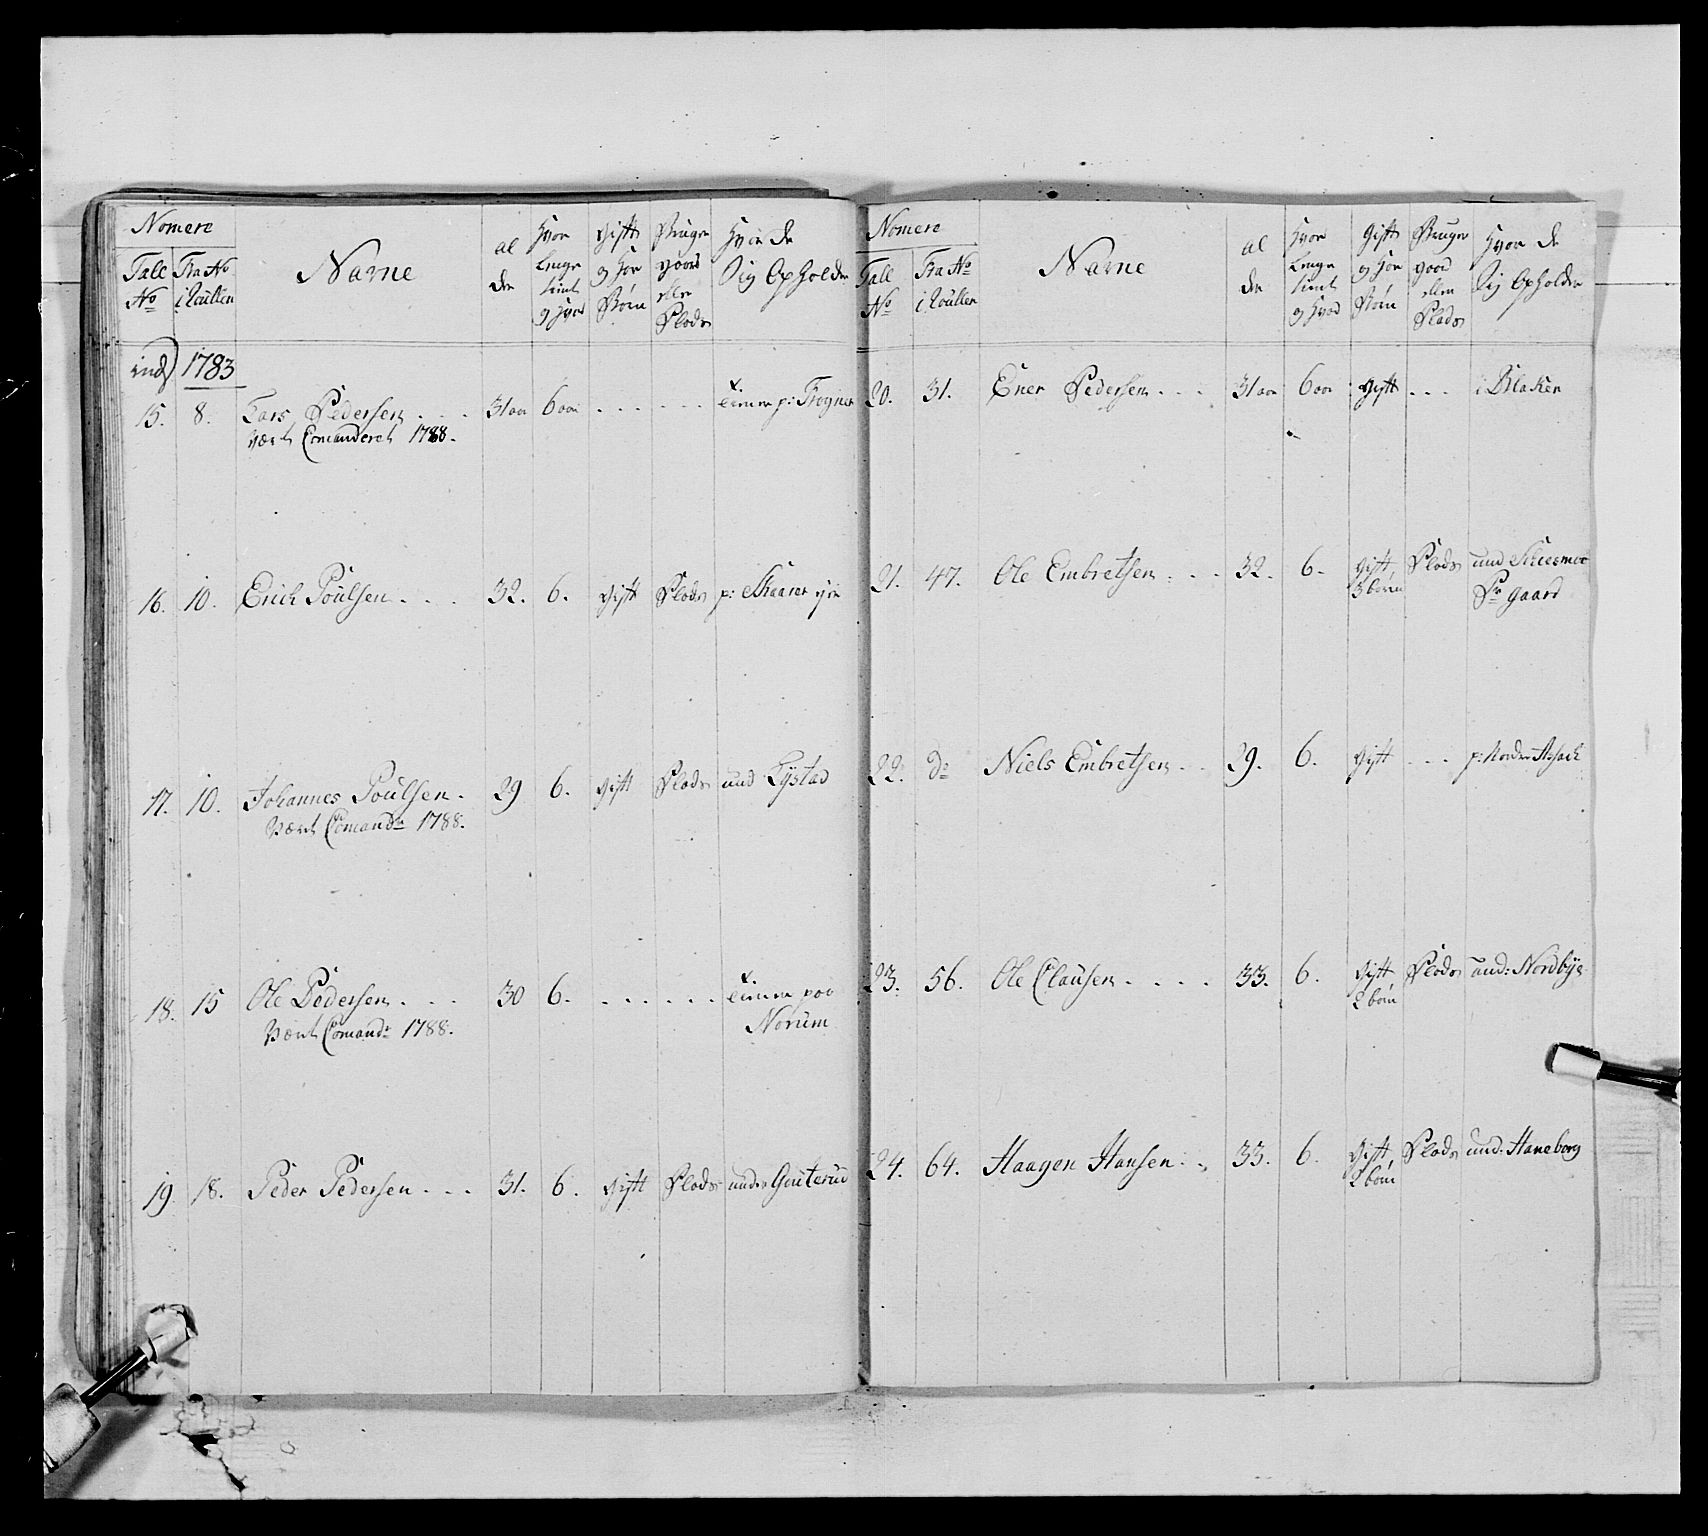 Nomere
Tall No
Fra No i Roullen
Navne
al der
Hvor lenge tient og hvad
Gift og hvor Børn
Bruger gaard eller Plads
Hvor de Sig Opholder
ind 1783
15. 8. Lars Pedersen . . . 31 aar 6 aar . . . . . . p: Frogner
vært Comanderet 1788.
16. 10. Erich Poulsen . . . 32. 6. Gift Plads p: Skaarer
17. 10. Johannes Poulsen . 29 6. Gift Plads und Lystad
Vært Comandr 1788.
18. 15 Ole Pedersen . . . 30 6. . . . . . . paa
Norum
Vært Comandr 1788.
19. 18. Peder Pedersen . . . 31. 6. Gift Plads under Gouterud
Nomere
Tall No
Fra No i Roullen
Navne
al der
Hvor lenge tient og hvad
Gift og hvor Børn
Bruger gaard eller Plads
Hvor de Sig Opholder
20. 31. Ener Pedersen . . . 31 aar 6 aar Gift . . . i Blaker
21. 47. Ole Embretsen . . . 32. 6. Gift Plads und
3 børn Pr gaard
22. do Niels Embretsen . . 29. 6. Gift . . . p: Nordre Asach
23. 56. Ole Clausen . . . . 33. 6. Gift Plads und: Nordbye
2 børn
24. 64. Haagen Hansen . . 33. 6. Gift Plads und: Haneborg
2 børn